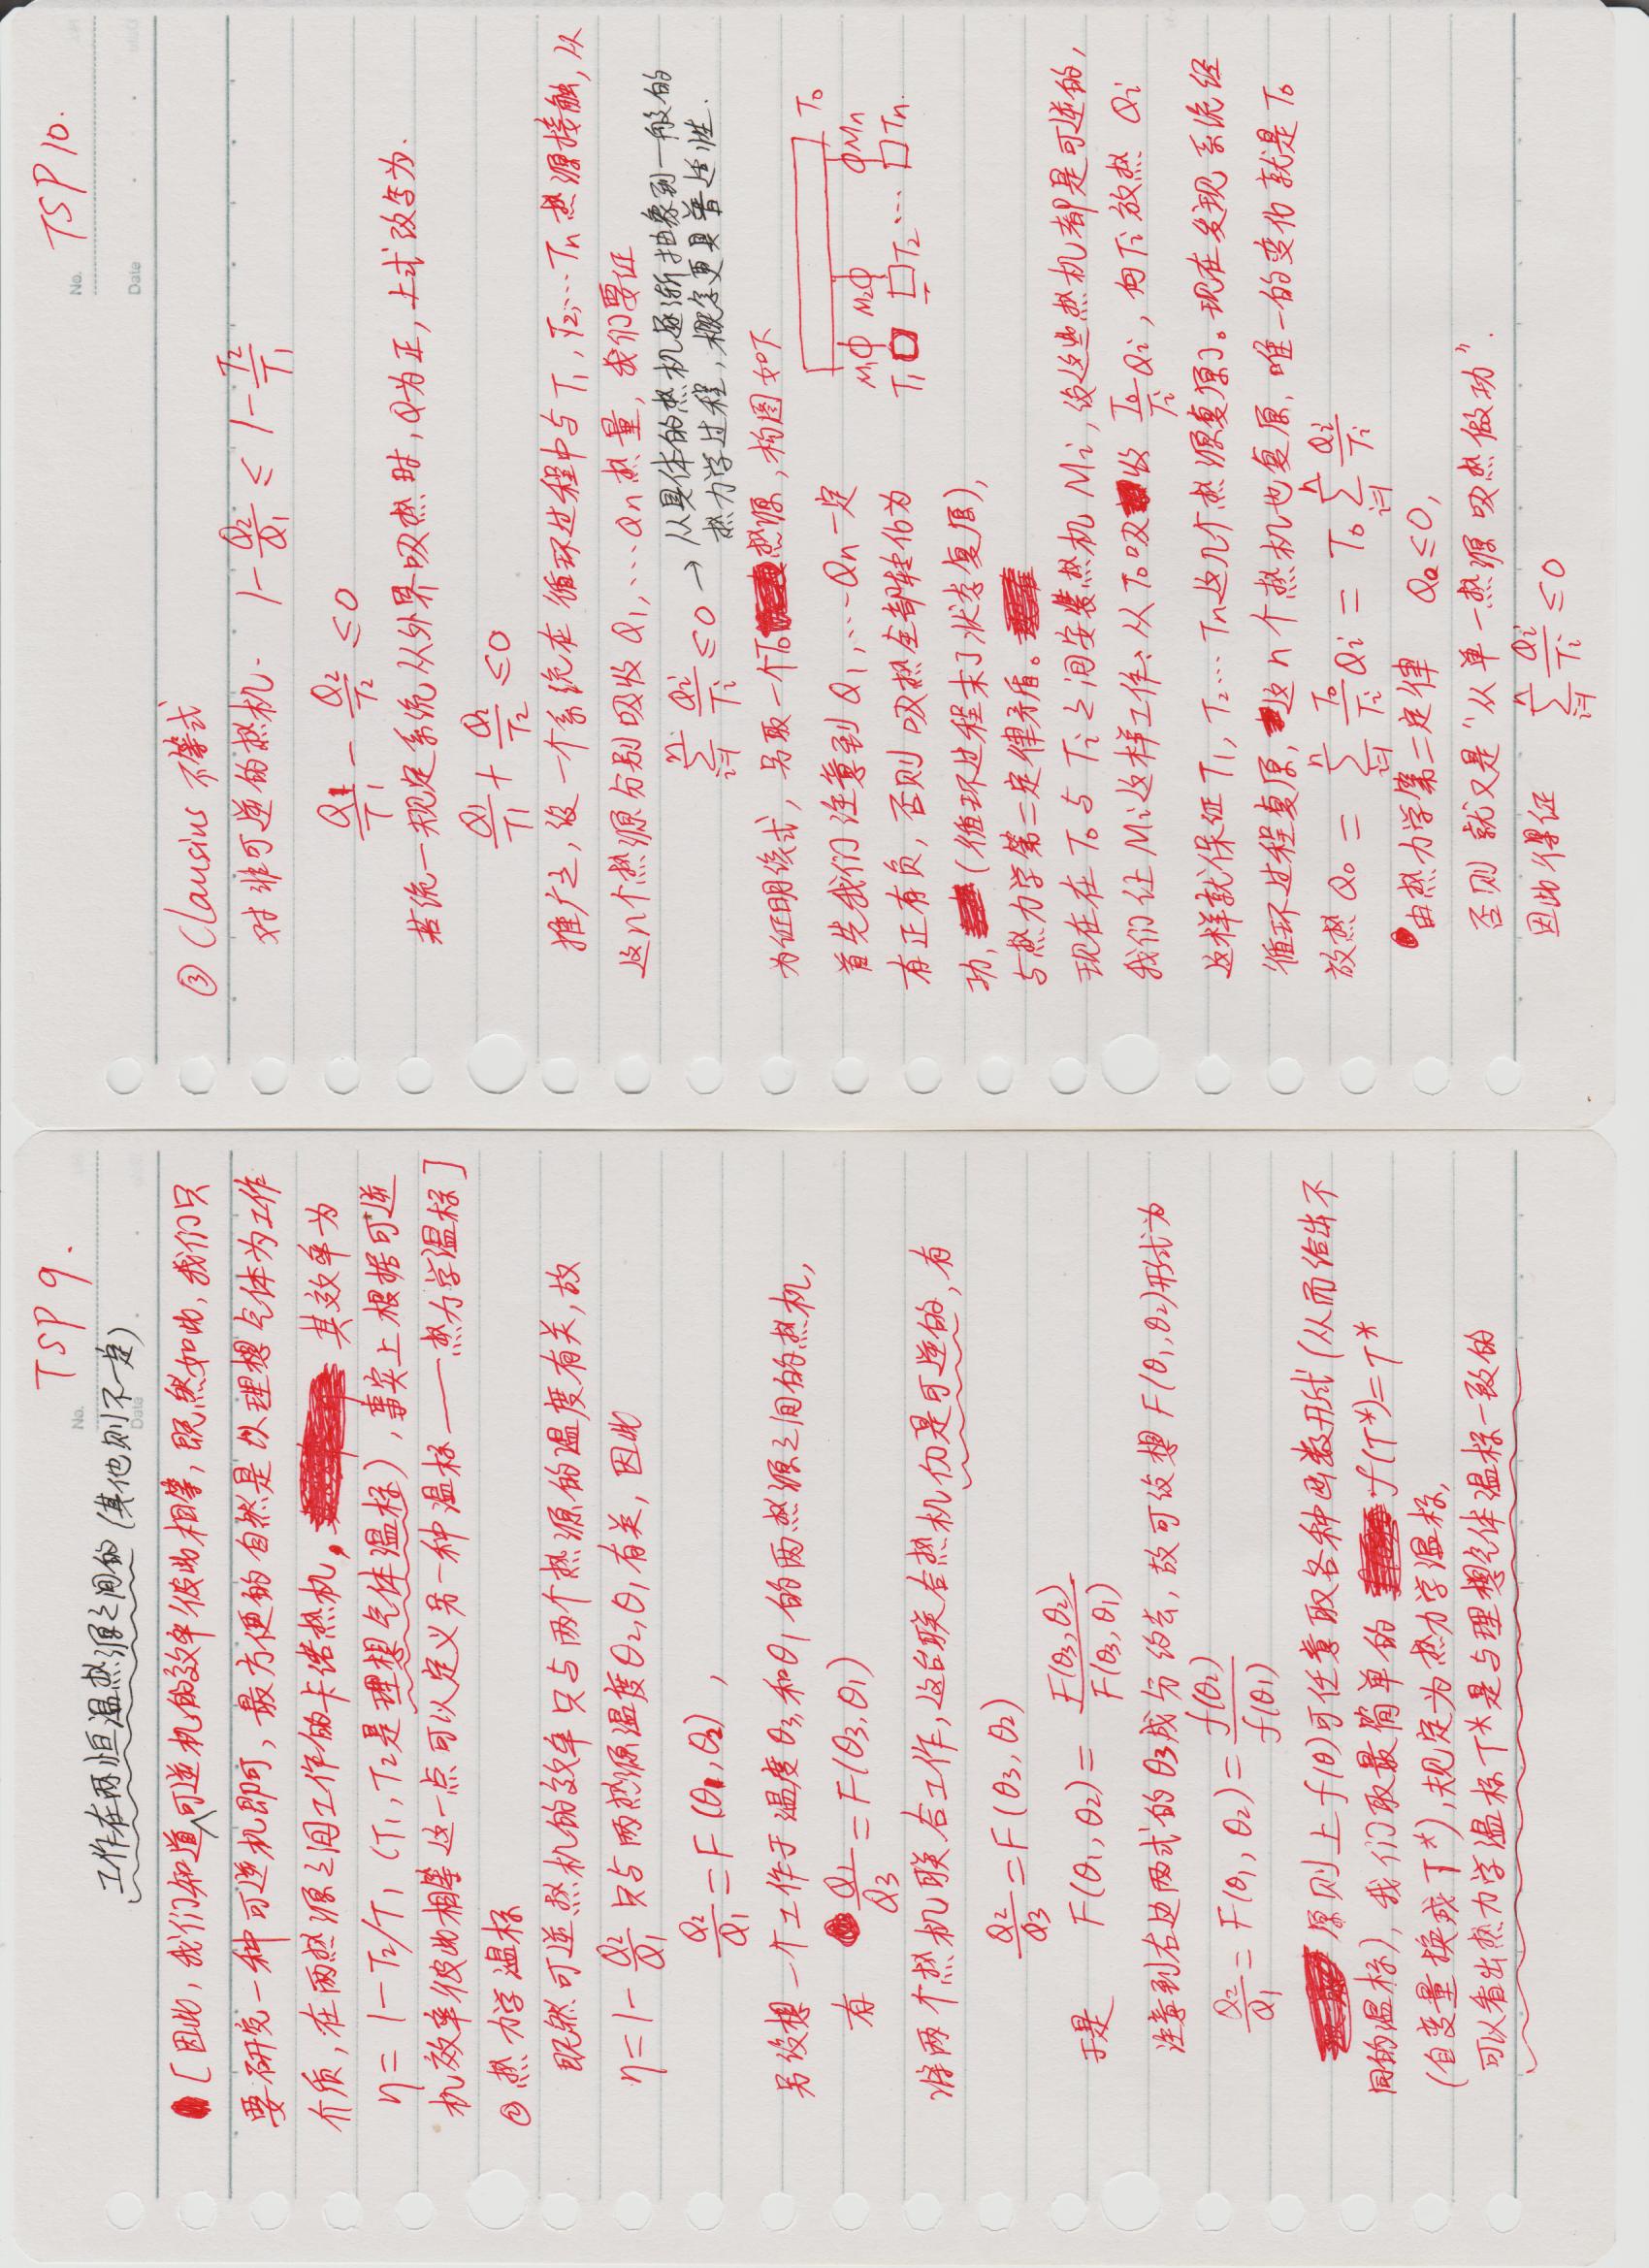 TSP 9.
No.
工作在两恒温热源之间的(其他则不一定)
Date
[因此,我们知道∧可逆机的效率彼此相等,既然如此,我们只
要研究一种可逆机即可,最方便的自然是以理想气体为工作
介质,在两热源之间工作的卡诺热机, 其效率为
η= 1-T2/T1 (T1,T2是理想气体温标),事实上根据可逆
机效率彼此相等这一点可以定义另一种温标——热力学温标]
② 热力学温标
既然可逆热机的效率只与两个热源的温度有关,故
η=1- Q2/Q1 只与两热源温度θ2,θ1有关,因此
Q2/Q1 = F(θ1,θ2),
另设想一个工作于温度θ3,和θ1的两热源之间的热机,
有 Q1/Q3 = F(θ3,θ1)
将两个热机联合工作,这台联合热机仍是可逆的,有
Q2/Q3 = F(θ3,θ2)
于是 F(θ1,θ2)= F(θ3,θ2)/F(θ3,θ1)
注意到右边两式的θ3成分约去,故可设想F(θ1,θ2)形式为
Q2/Q1 = F(θ1,θ2)= f(θ2)/f(θ1)
原则上f(θ)可任意取各种函数形式(从而给出不
同的温标),我们取最简单的 f(T*)=T*
(自变量换成T*),规定为热力学温标,
可以看出热力学温标T*是与理想气体温标一致的
TSP 10.
No.
Date
③ Clausius 不等式
对非可逆的热机. 1- Q2/Q1 ≤ 1- T2/T1
Q1/T1 - Q2/T2 ≤0
若统一规定系统从外界吸热时,Q为正,上式改写为.
Q1/T1 + Q2/T2 ≤0
推广之,设一个系统在循环过程中与T1,T2,…Tn热源接触,从
这n个热源分别吸收Q1,…Qn热量,我们要证
∑(i=1→n) Qi/Ti ≤0 → 从具体的热机逐渐抽象到一般的
热力学过程,概念更具普适性.
为证明该式,另取一个T0热源,构图如下
T0
首先我们注意到Q1,…Qn一定
M1 M2 Mn
有正有负,否则吸热全部转化为
T1 T2 … Tn.
功,(循环过程末了状态复原),
与热力学第二定律矛盾。
现在在T0与Ti之间安装热机Mi,设这些热机都是可逆的,
我们让Mi这样工作:从T0吸收 T0/Ti Qi,向Ti放热 Qi
这样就保证T1,T2…Tn这几个热源复原了。现在发现系统经
循环过程复原,这n个热机也复原,唯一的变化就是T0
放热Q0 = ∑(i=1→n) T0/Ti Qi = T0 ∑(i=1→n) Qi/Ti
由热力学第二定律 Q0≤0,
否则就又是“从单一热源吸热做功”.
因此得证 ∑(i=1→n) Qi/Ti ≤0